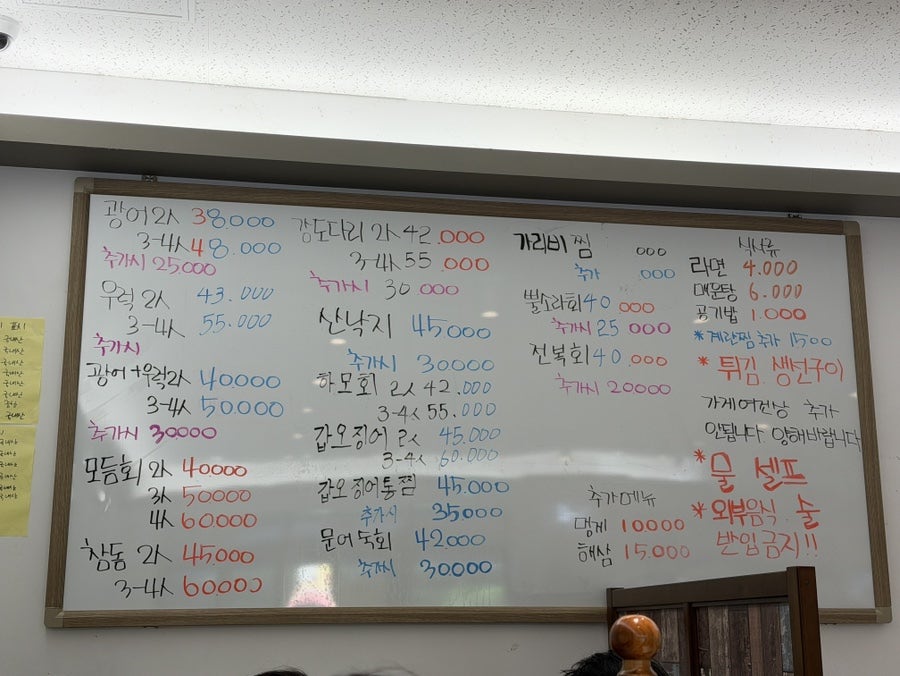 광어 2人 38.000
3-4人 48.000
추가시 25000
우럭 2人 43.000
3-4人 55.000
추가시
광어+우럭 2人 40000
3-4人 50000
추가시 30000
모듬회 2人 40000
3人 50000
4人 60000
참돔 2人 45.000
3-4人 60000
강도다리 2人 42.000
3-4人 55.000
추가시 30000
산낙지 45000
추가시 30000
하모회 2人 42.000
3-4人 55.000
갑오징어 2人 45.000
3-4人 60.000
갑오징어통찜 45.000
추가시 35.000
문어숙회 42000
추가시 30000
가리비찜 000
추가 .000
뿔소라회 40 000
추가시 25 000
전복회 40.000
추가시 20000
추가메뉴
멍게 10000
해삼 15.000
식사류
라면 4.000
매운탕 6.000
공기밥 1.000
*계란찜 추가 1500
* 튀김. 생선구이
가게여건상 추가
안됩니다 양해바랍니다
*물 셀프
*외부음식. 술
반입금지!!
국내산
국내산
국내산
국내산
국내산
국내산